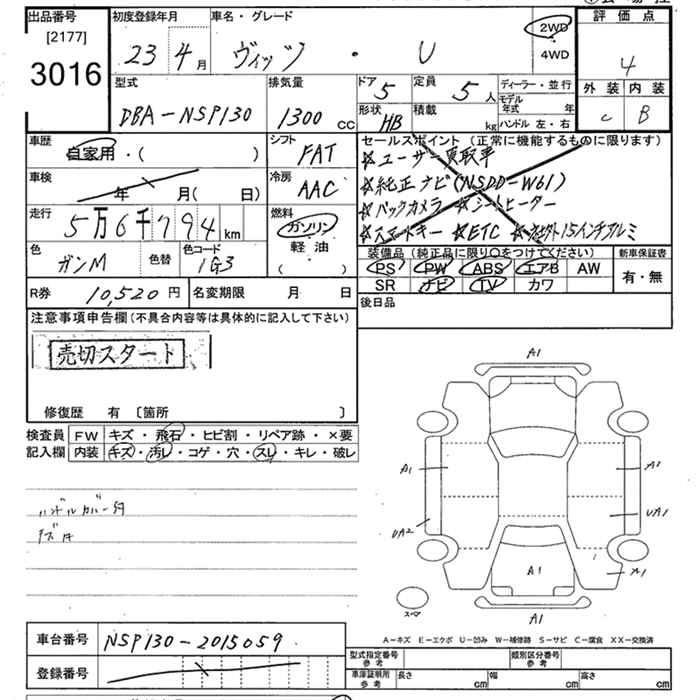 出品番号
[2177]
3016
初度登録年月
23 4月
車名・グレード
ヴィッツ ・ U
2WD
4WD
評価点
4
外装 内装
C B
型式
DBA-NSP130
排気量
1300 CC
ドア 5
定員 5人
形状 HB
積載 kg
ディーラー・並行
モデル年式 年
ハンドル 左・右
車歴
自家用・( )
シフト
FAT
車検
年 月( 日)
冷房
AAC
走行
5万6千794 km
燃料
ガソリン
軽油
( )
色
ガンM
色替
色コード
1G3
セールスポイント (正常に機能するものに限ります)
☆ユーザー買取車
☆純正ナビ(NSDD-W61)
☆バックカメラ ☆シートヒーター
☆スマートキー ☆ETC ☆社外15インチアルミ
装備品 (純正品に限り○をつけてください)
PS PW ABS エアB AW
SR ナビ TV カワ
新車保証書
有・無
R券 10,520円
名変期限 月 日
後日品
注意事項申告欄(不具合内容等は具体的に記入して下さい)
売切スタート
修復歴 有 [箇所 ]
検査員記入欄
FW キズ・飛石・ヒビ割・リペア跡・×要
内装 キズ・汚レ・コゲ・穴・スレ・キレ・破レ
ハンドルカバー付
A1
A1
A2
UA2
UA1
A1
A1
A1
スペア
A-キズ E-エクボ U-凹み W-補修跡 S-サビ C-腐食 XX-交換済
車台番号 NSP130-2015059
登録番号
型式指定番号 参考
類別区分番号 参考
車庫証明用 参考
長さ cm
幅 cm
高さ cm